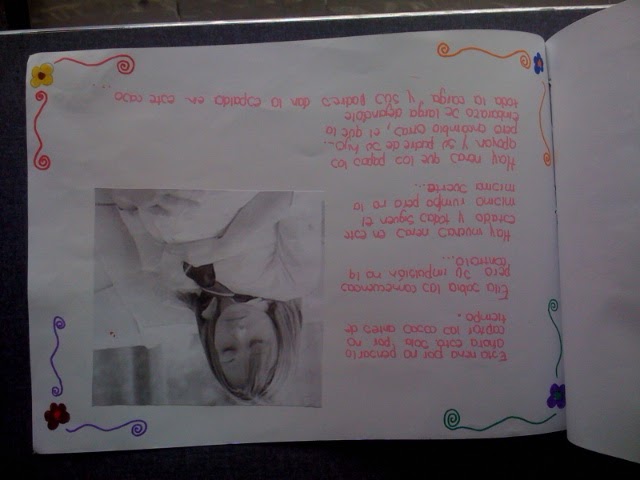 Esta nena por no pensarlo
ahora está sola por no
captar las cosas antes de
tiempo.
Ella sabia las
pero su impulsión no la
controlo...
Hay muchas nenas en este
estado y todas siguen el
mismo rumbo pero no la
misma suerte...
Hay nenas que los papas las
apoyan y su padre de su hijo...
pero encambio otras, el que la
embarazo se larga dejandole
toda la carga y sus padres la dan la espalda en este caso
...